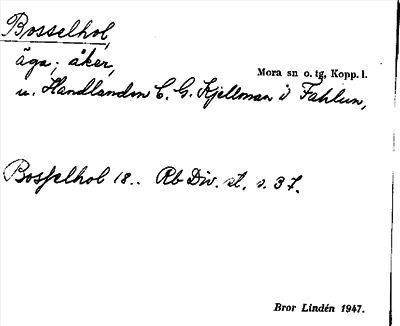 Bosselhol,
äga; åker,
Mora sn o. tg, Kopp. l.
u. Handlanden C. G. Kjellman i Fahlun,
Bosselhol 18.. Rb Div. st. s. 37.
Bror Lindén 1947.